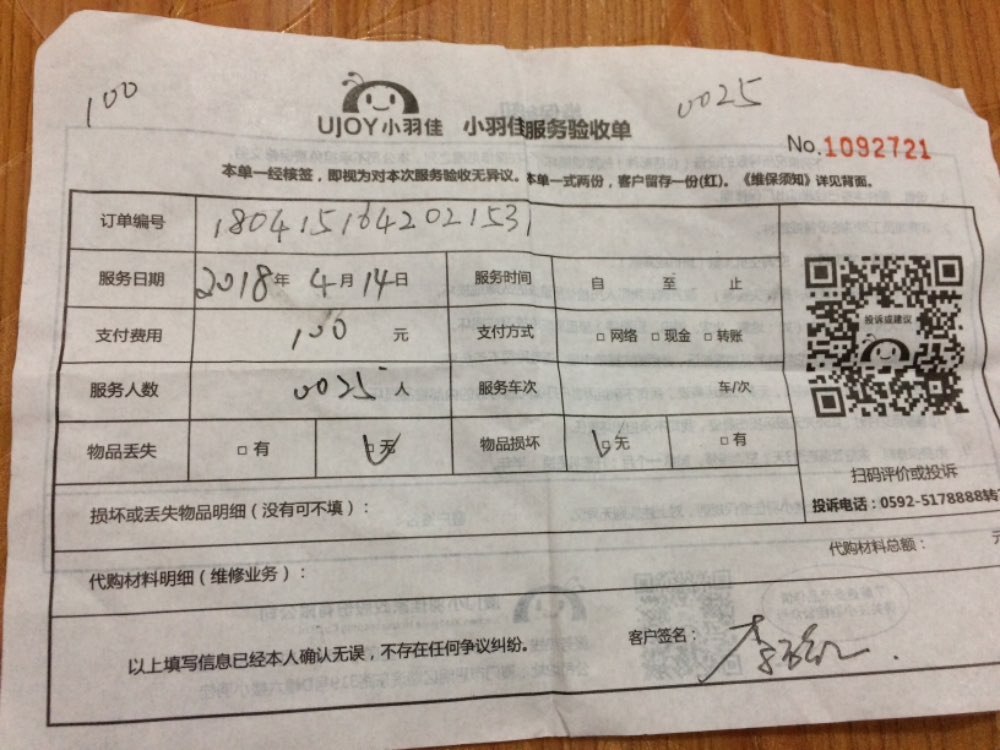 100
0025
UJOY小羽佳 小羽佳服务验收单
No.1092721
本单一经核签，即视为对本次服务验收无异议。本单一式两份，客户留存一份(红)。《维保须知》详见背面。
订单编号 1804151642021531
服务日期 2018年 4月14日 服务时间 自 至 止
支付费用 100 元 支付方式 □网络 □现金 □转账
投诉或建议
服务人数 0025 人 服务车次 车/次
物品丢失 □有 □无 物品损坏 □无 □有
扫码评价或投诉
损坏或丢失物品明细（没有可不填）：
投诉电话：0592-5178888转
代购材料总额： 元
代购材料明细（维修业务）：
以上填写信息已经本人确认无误，不存在任何争议纠纷。 客户签名：